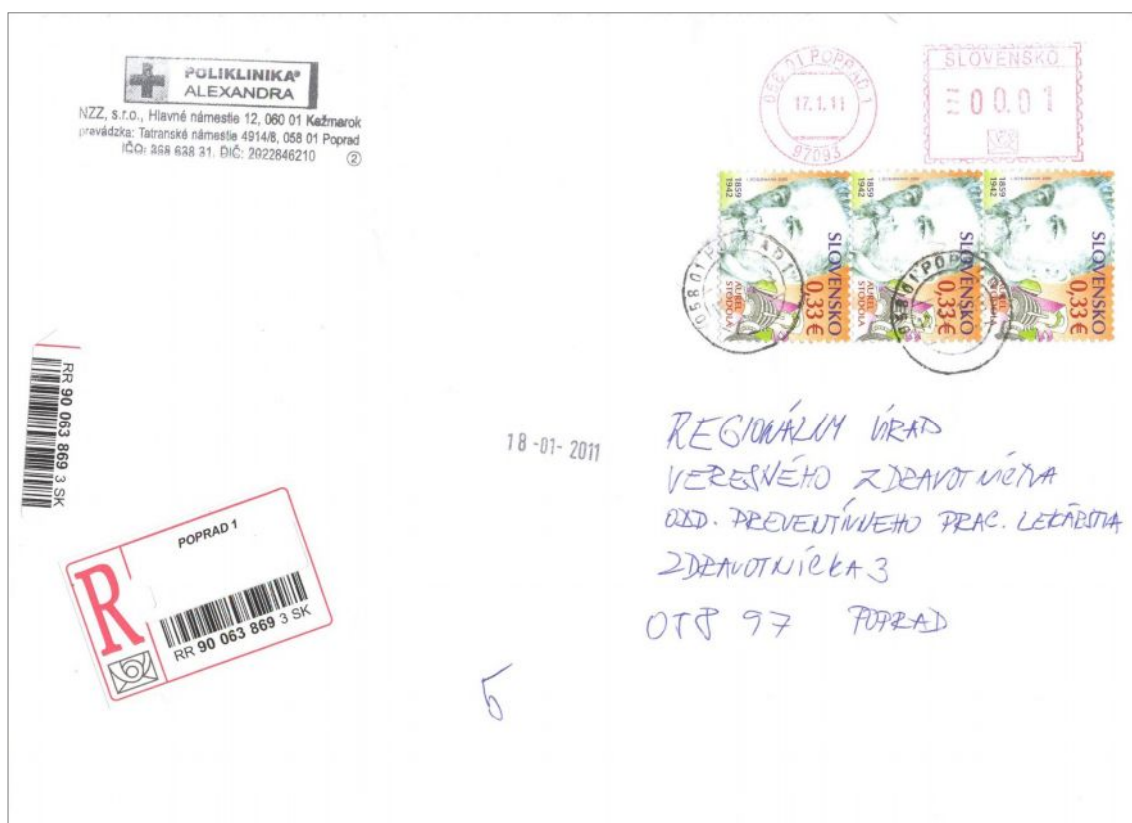 POLIKLINIKA®
ALEXANDRA
NZZ, s.r.o., Hlavné námestie 12, 060 01 Kežmarok
prevádzka: Tatranské námestie 4914/8, 058 01 Poprad
IČO: 368 638 31. DIČ: 2022846210 2
058 01 POPRAD 1
17.1.11
97093
SLOVENSKO
00.01
1859
1942
SLOVENSKO
0,33 €
AUREL
STODOLA
1859
1942
SLOVENSKO
0,33 €
AUREL
STODOLA
SLOVENSKO
0,33 €
058 01 POPRAD 1
058 01 POP
RR 90 063 869 3 SK
18 -01- 2011
REGIONÁLNY ÚRAD
VEREJNÉHO ZDRAVOTNÍCTVA
ODD. PREVENTÍVNEHO PRAC. LEKÁRSTVA
ZDRAVOTNÍCKA 3
058 97 POPRAD
POPRAD 1
R
RR 90 063 869 3 SK
5